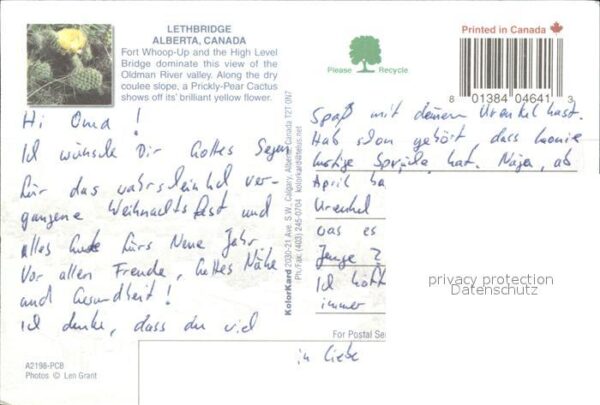 LETHBRIDGE
ALBERTA, CANADA
Fort Whoop-Up and the High Level
Bridge dominate this view of the
Oldman River valley. Along the dry
coulee slope, a Prickly-Pear Cactus
shows off its' brilliant yellow flower.
Hi Oma!
Ich wünsche Dir Gottes Segen
für das wahrscheinlich ver-
gangene Weihnachtsfest und
alles Gute fürs Neue Jahr,
Vor allen Freude, Gottes Nähe
und Gesundheit!
Ich denke, dass du viel
A2198-PCB
Photos © Len Grant
KolorKard 2030-21 Ave. S.W., Calgary, Alberta Canada T2T 0N7
Ph./Fax: (403) 245-0704 kolorkard@telus.net
Please Recycle
Printed in Canada
8 01384 04641 3
Spaß mit deinem Urenkel hast.
Hab schon gehört, dass
lustige Sprüche hat. Naja, ab
April
Urenkel
was es
Junge?
Ich hoff
immer
For Postal Se
in Liebe
privacy protection
Datenschutz